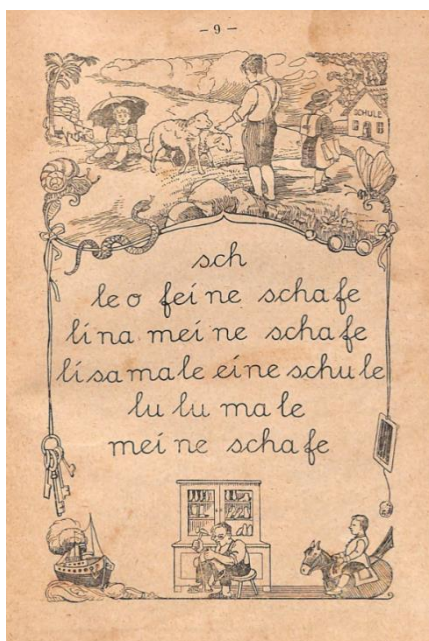 – 9 –
SCHULE
sch
le o fei ne scha fe
li na mei ne scha fe
li sa ma le ei ne schu le
lu lu ma le
mei ne scha fe